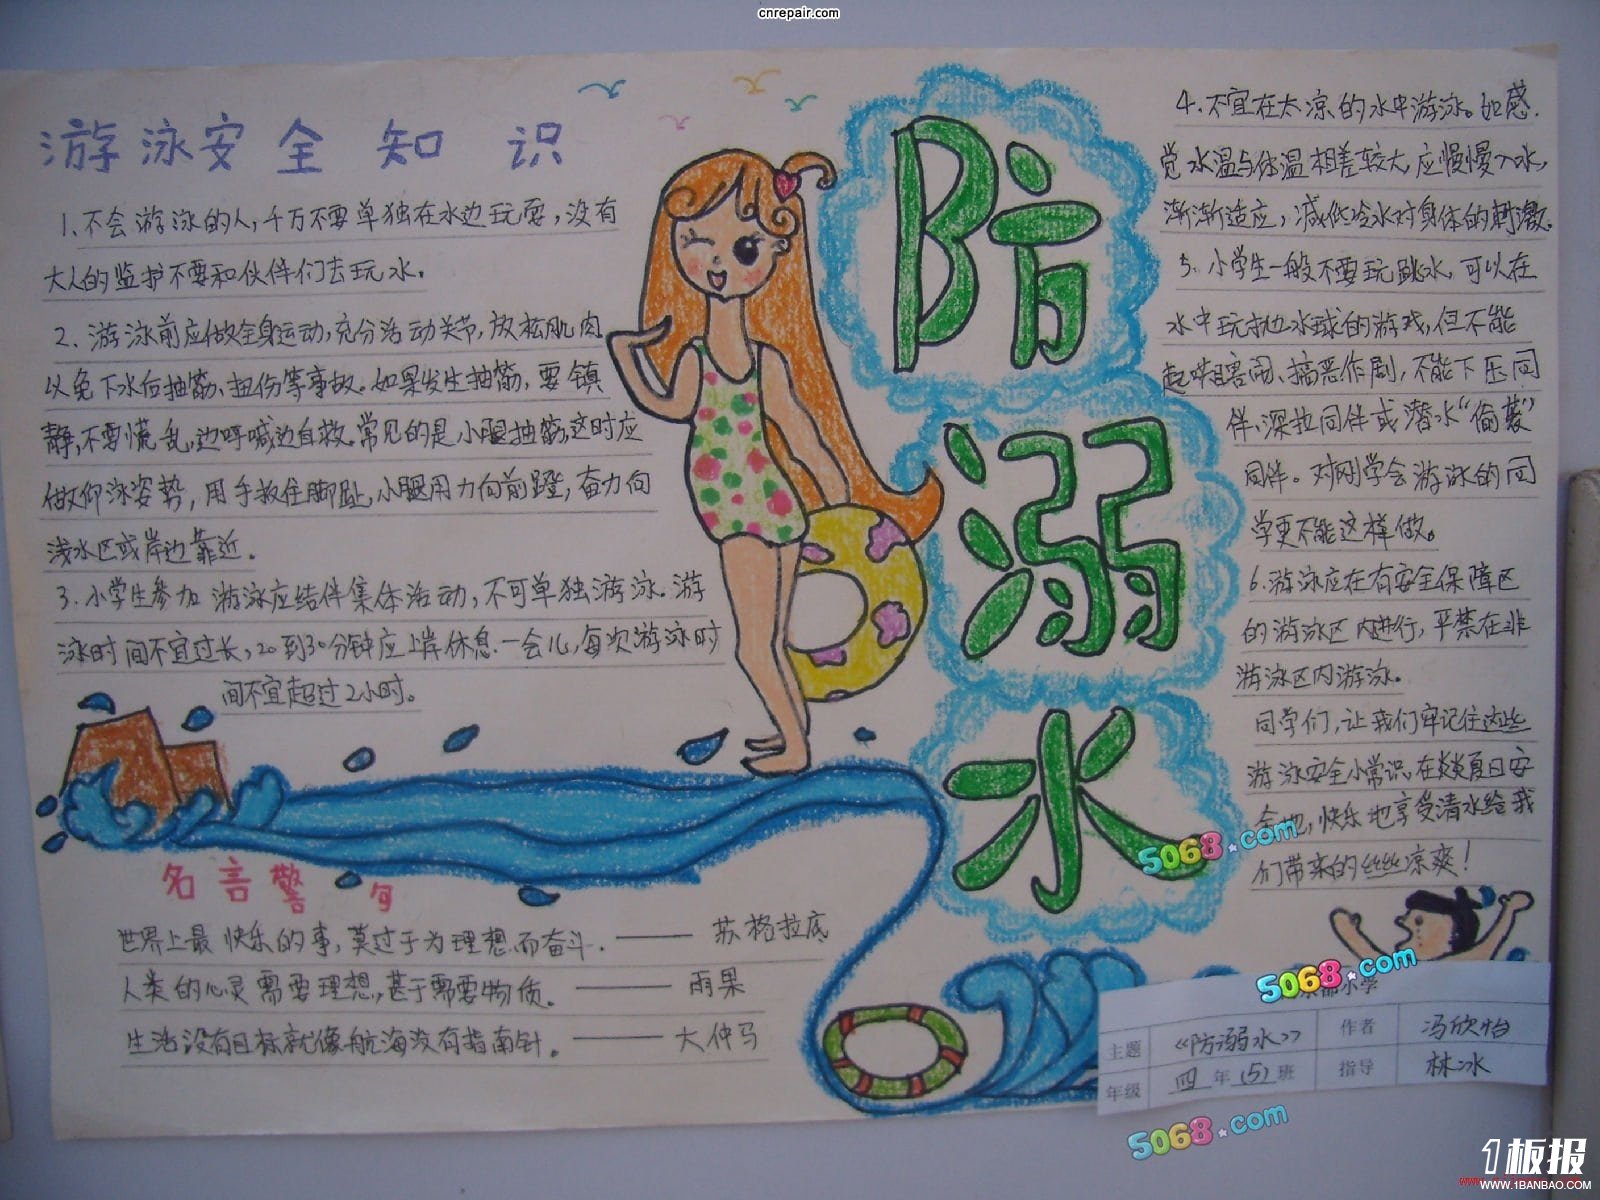 cnrepair.com
游泳安全知识
1、不会游泳的人,千万不要单独在水边玩耍,没有
大人的监护不要和伙伴们去玩水。
2、游泳前应做全身运动,充分活动关节,放松肌肉
以免下水后抽筋、扭伤等事故。如果发生抽筋,要镇
静,不要慌乱,边呼喊边自救。常见的是小腿抽筋,这时应
做仰泳姿势,用手扳住脚趾,小腿用力向前蹬,奋力向
浅水区或岸边靠近。
3、小学生参加游泳应结伴集体活动,不可单独游泳。游
泳时间不宜过长,20到30分钟应上岸休息一会儿,每次游泳时
间不宜超过2小时。
防溺水
4、不宜在太凉的水中游泳。如感
觉水温与体温相差较大,应慢慢入水,
渐渐适应,减低冷水对身体的刺激。
5、小学生一般不要玩跳水,可以在
水中玩抛水球的游戏,但不能
起哄害闹、搞恶作剧,不能下压同
伴、深拉同伴或潜水“偷袭”
同伴。对刚学会游泳的同
学更不能这样做。
6、游泳应在有安全保障区
的游泳区内进行,严禁在非
游泳区内游泳。
同学们,让我们牢记住这些
游泳安全小常识,在炎炎夏日安
全地,快乐地享受清水给我
们带来的丝丝凉爽!
名言警句
世界上最快乐的事,莫过于为理想而奋斗.——苏格拉底
人类的心灵需要理想,甚于需要物质。——雨果
生活没有目标就像航海没有指南针。——大仲马
都小学
主题 《防溺水》 作者 冯欣怡
年级 四年(5)班 指导 林冰
5068.com
5068.com
5068.com
1板报
WWW.1BANBAO.COM